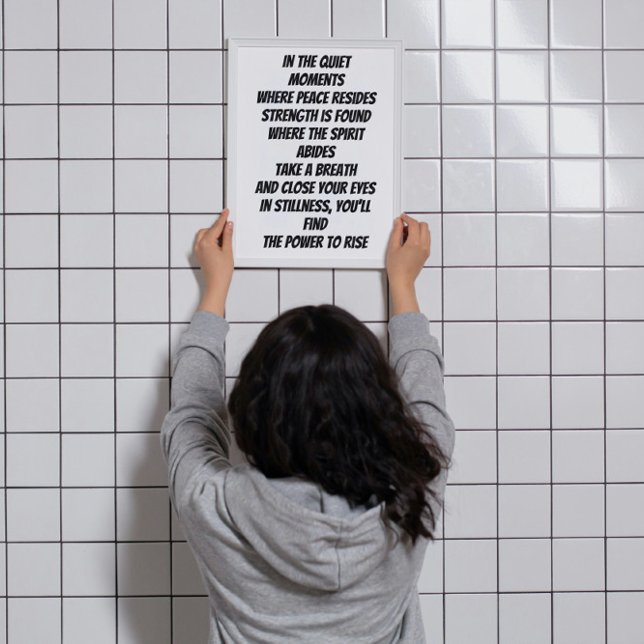 IN THE QUIET
MOMENTS
WHERE PEACE RESIDES
STRENGTH IS FOUND
WHERE THE SPIRIT
ABIDES
TAKE A BREATH
AND CLOSE YOUR EYES
IN STILLNESS, YOU'LL
FIND
THE POWER TO RISE